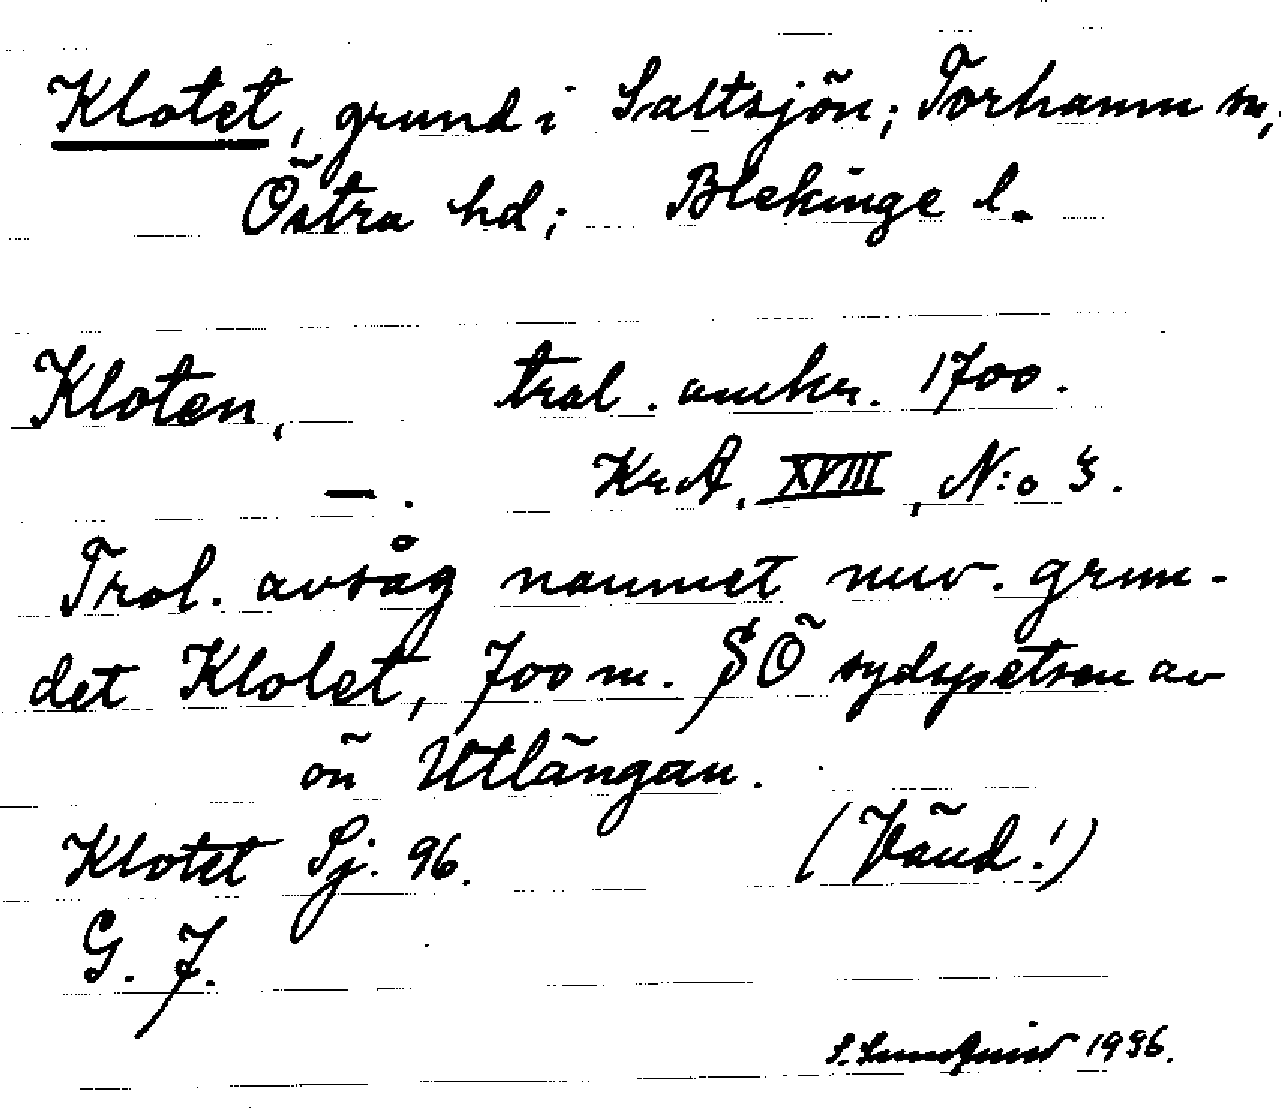 Klotet, grund i Saltsjön; Torhamn sn,
Östra hd; Blekinge l.
Kloten, — trol. omkr. 1700.
—. KrA, XVIII, N:o 3.
Trol. avsåg namnet nuv. grun-
det Klotet, 700 m. SÖ sydspetsen av
ön Utlängan.
Klotet Sj. 96. (Vänd!)
G. F.
S. 1936.